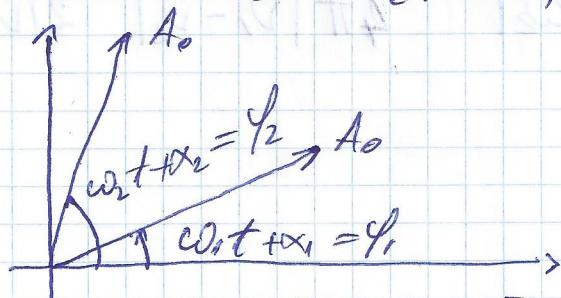 A₀
ω₂t+α₂=φ₂
A₀
ω₁t+α₁=φ₁